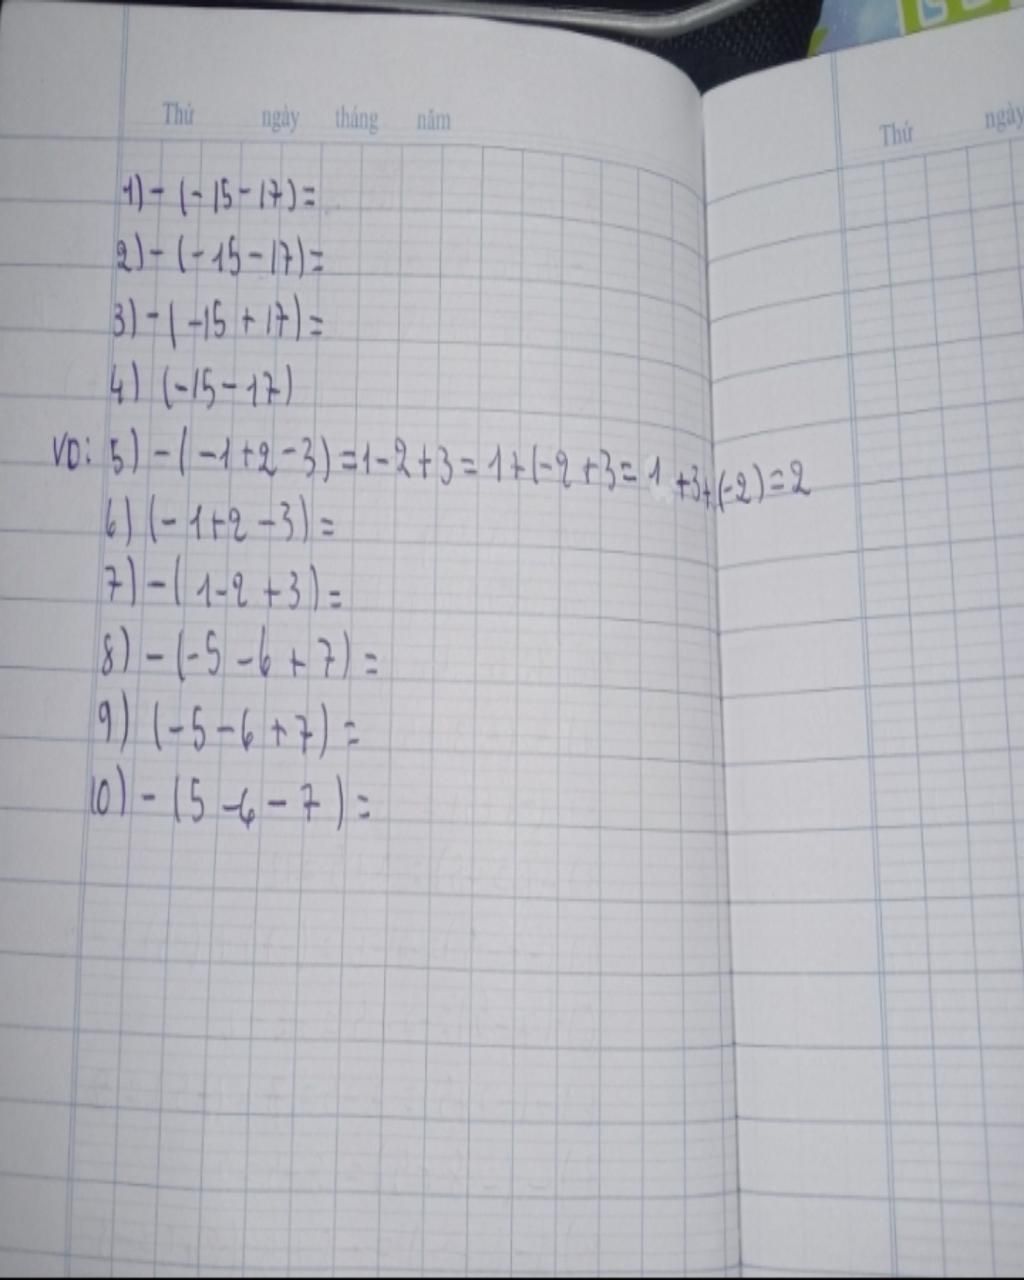 Thứ ngày tháng năm
1) - (-15 - 17) =
2) - (-15 - 17) =
3) - (-15 + 17) =
4) (-15 - 17)
VD: 5) - (-1 + 2 - 3) = 1 - 2 + 3 = 1 + (-2 + 3 = 1 + 3 + (-2) = 2
6) (-1 + 2 - 3) =
7) - (1 - 2 + 3) =
8) - (-5 - 6 + 7) =
9) (-5 - 6 + 7) =
10) - (5 - 6 - 7) =
Thứ ngày